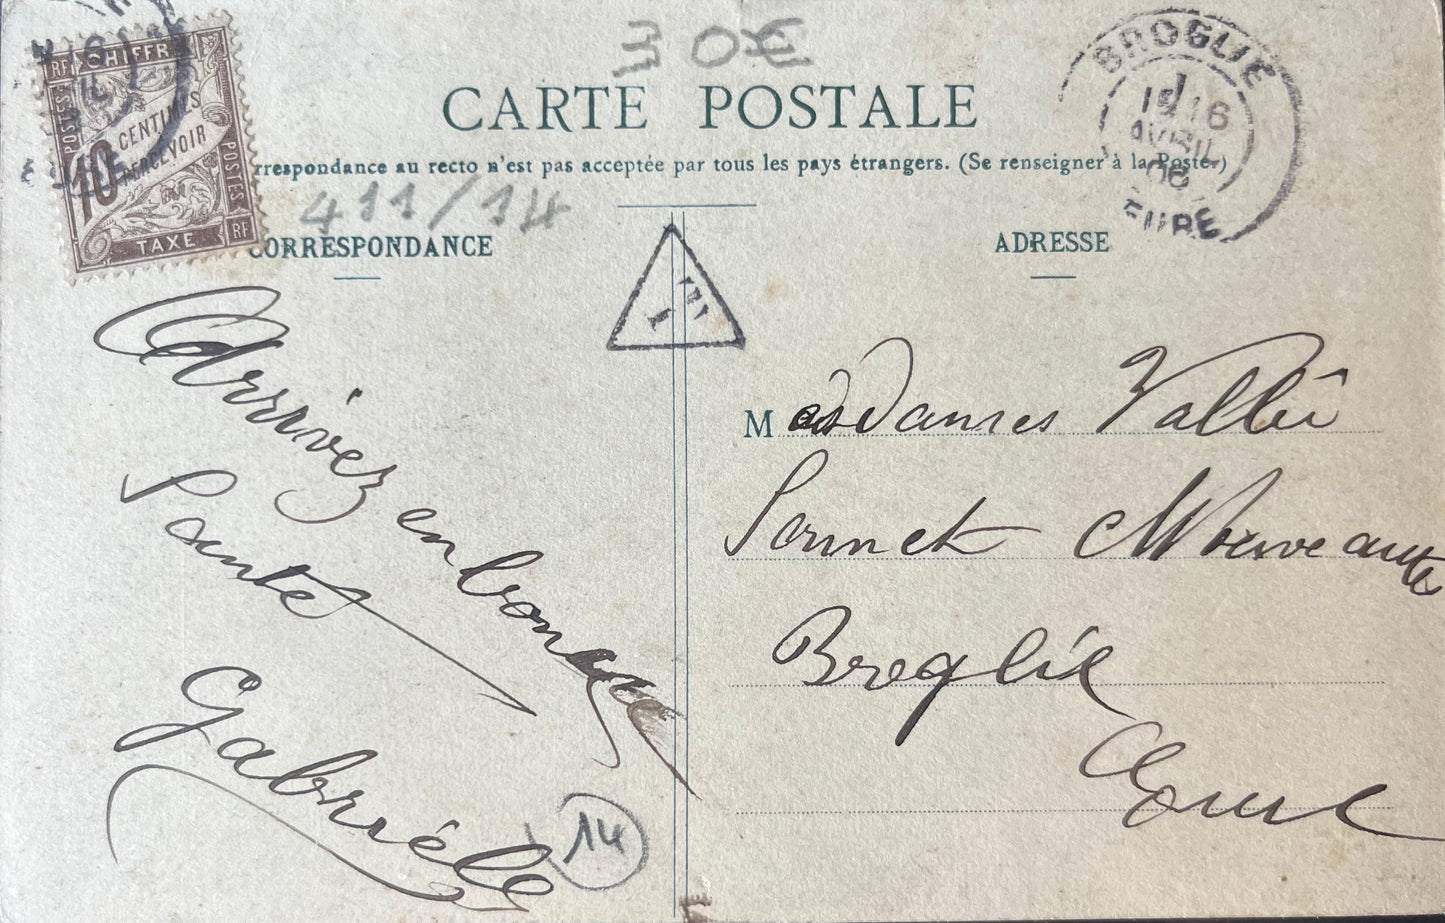 30€
CARTE POSTALE
rrespondance au recto n'est pas acceptée par tous les pays étrangers. (Se renseigner à la Poste.)
RF CHIFFR
POSTES
10 CENTIMES
PERCEVOIR
POSTES
TAXE RF
BROGLIE
16
AVRIL
06
EURE
411/14
CORRESPONDANCE
ADRESSE
T
Arrivéz en bonne
Santé
Gabrièlle
14
Mesdames Vallée
Sonnet Nouveautés
Broglie
Eure